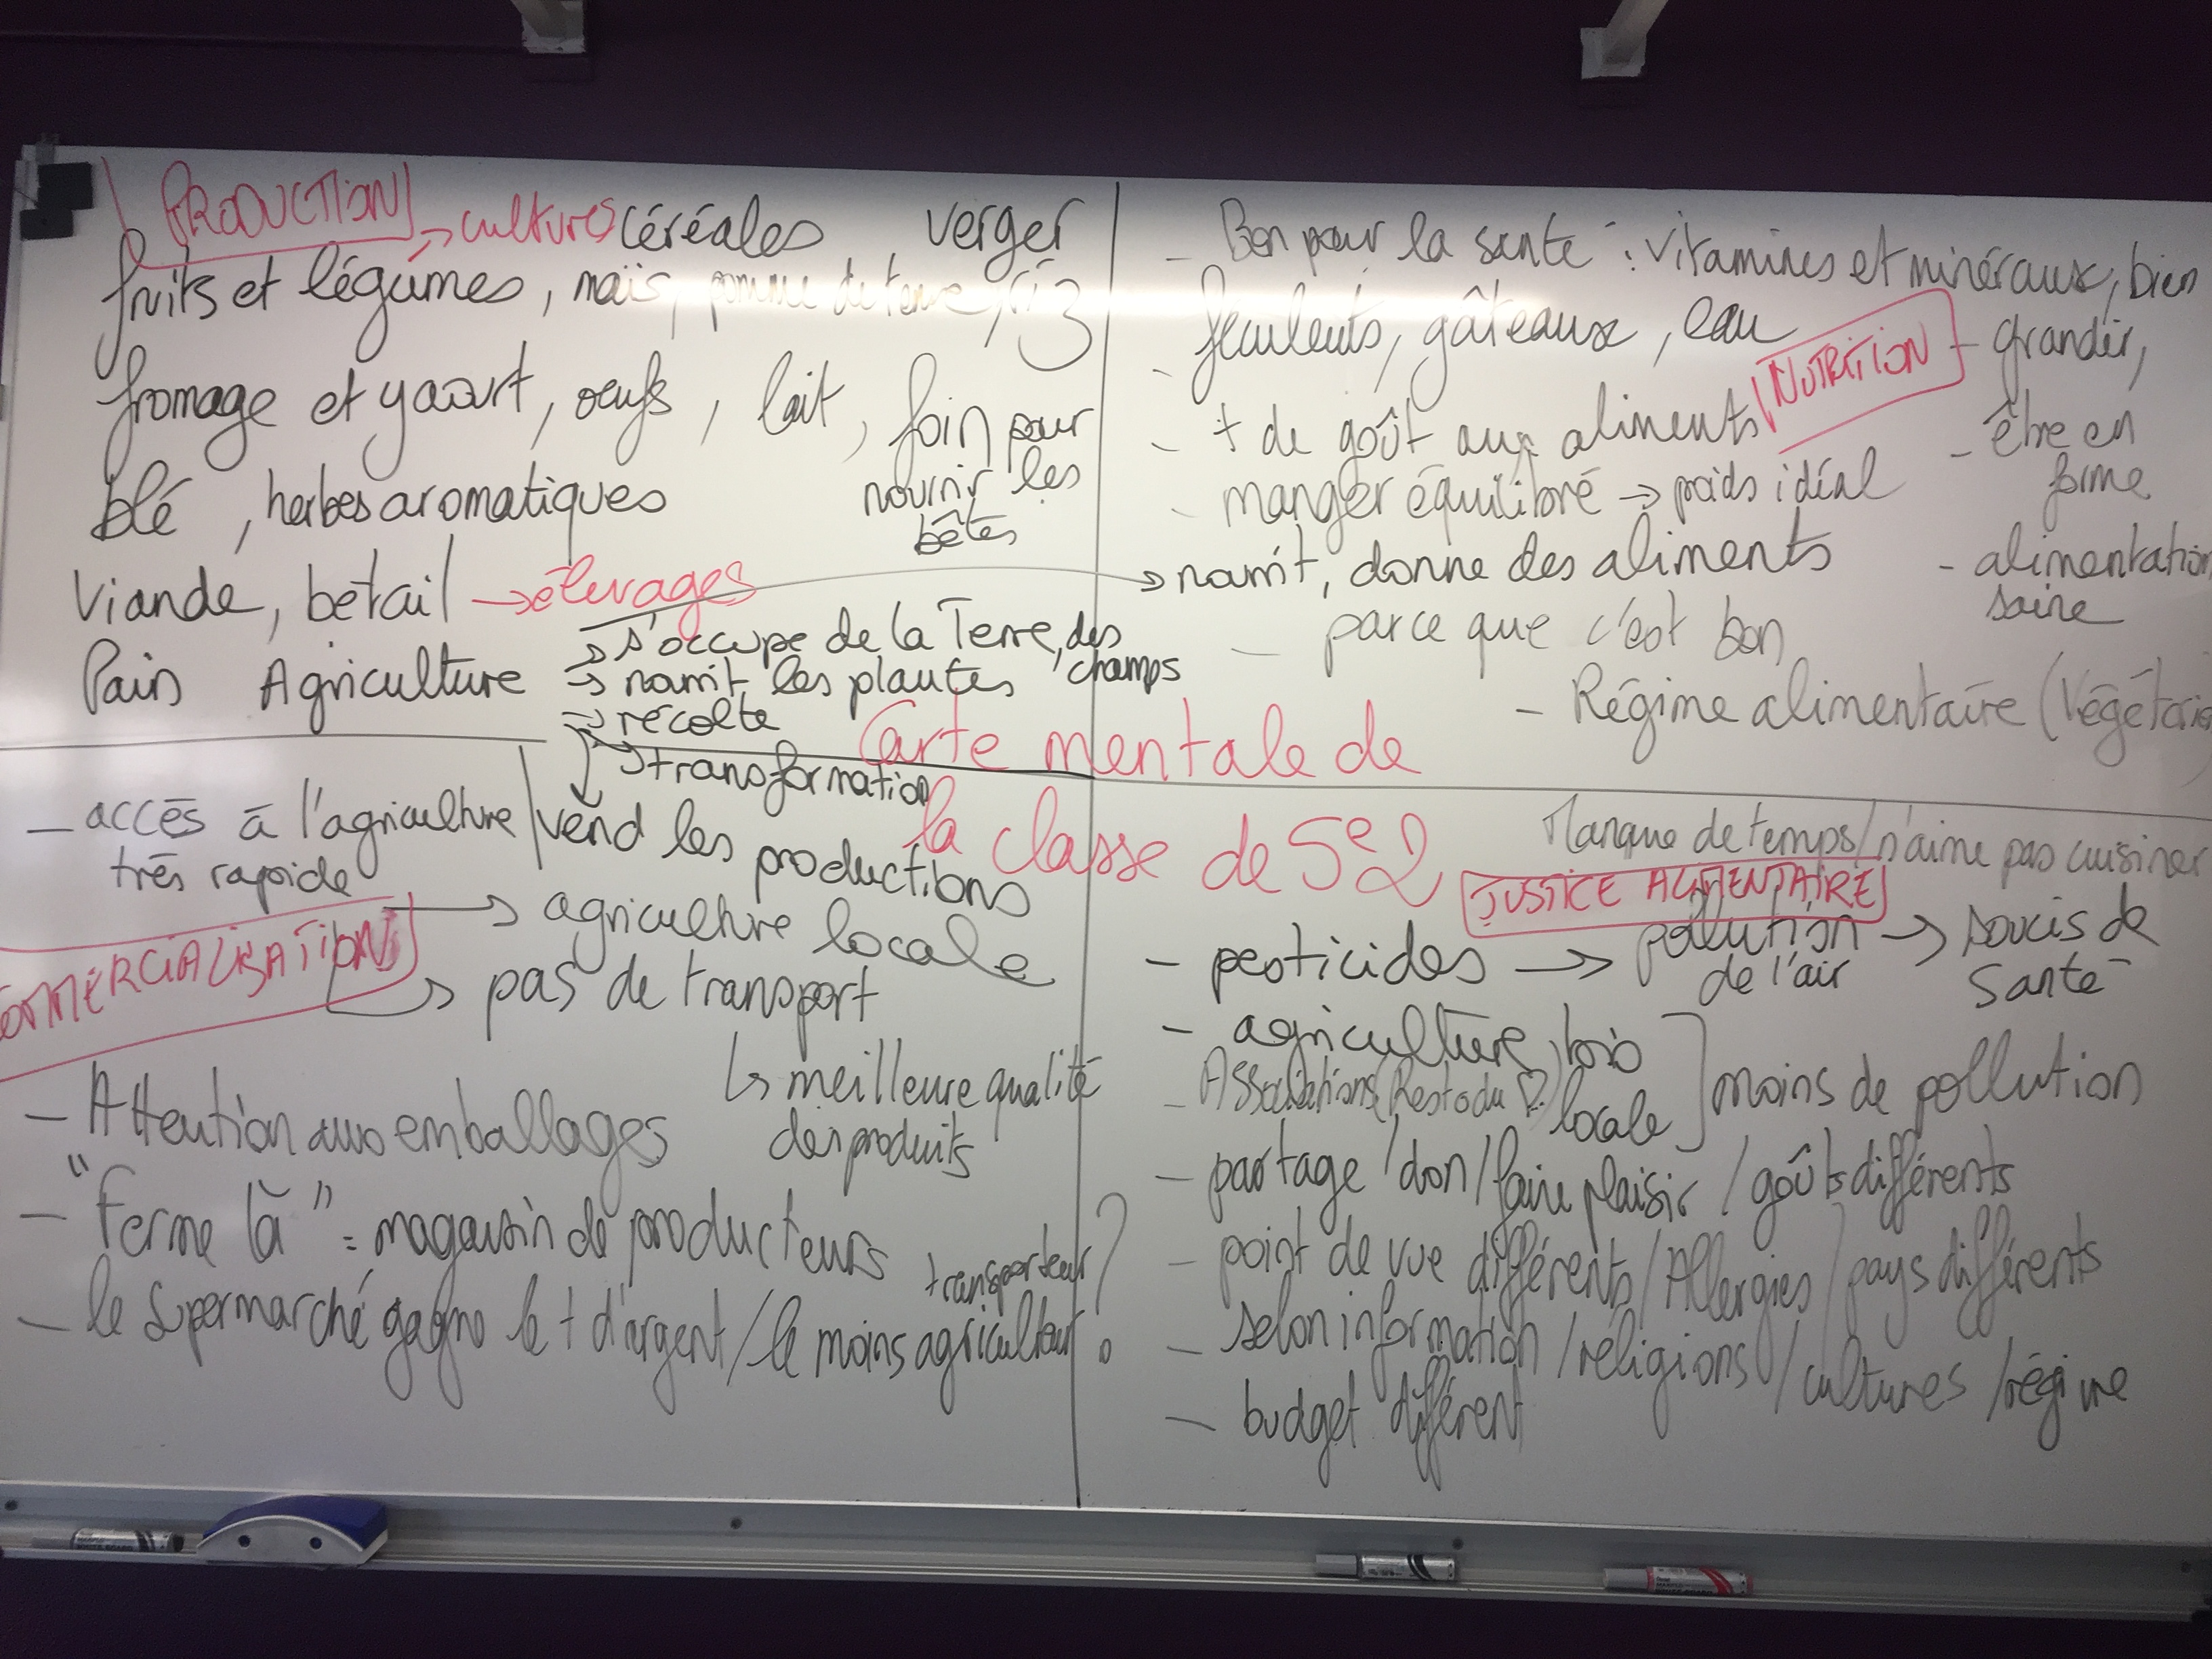 PRODUCTION → cultures céréales verger
fruits et légumes, maïs, pomme de terre, riz
fromage et yaourt, oeufs, lait, foin pour
nourrir les
bêtes
blé, herbes aromatiques
Viande, bétail → élevages
Pain Agriculture → s'occupe de la Terre, des
champs
→ nourrit les plantes
→ récolte
→ transformation
vend les productions
- Bon pour la santé : vitamines et minéraux, bien
grandir,
- féculents, gâteaux, eau
NUTRITION
- + de goût aux aliments
- être en
forme
- manger équilibré → poids idéal
→ nourrit, donne des aliments
- alimentation
saine
- parce que c'est bon
- Régime alimentaire (Végétarie
Carte mentale de
la classe de 5e2
- accès à l'agriculture
très rapide
COMMERCIALISATION → agriculture locale
→ pas de transport
↳ meilleure qualité
des produits
- Attention aux emballages
- "Ferme là" = magasin de producteurs
- le supermarché gagne le + d'argent / le moins agriculteur
transporteur ?
Manque de temps / n'aime pas cuisiner
JUSTICE ALIMENTAIRE
- pesticides → pollution
de l'air → soucis de
santé
- agriculture bio
locale ] moins de pollution
- Associations (Resto du ♡)
- partage / don / faire plaisir / goûts différents
- point de vue différents / Allergies / pays différents
- selon information / réligions / cultures / régime
- budget différent